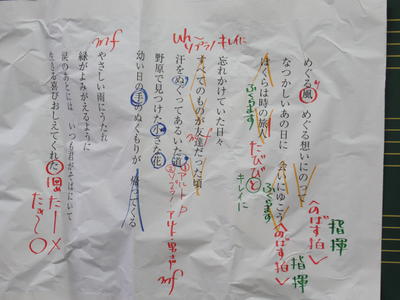 めぐる風 めぐる想いにのって
なつかしいあの日に 会いにゆこう
ぼくらは時の旅人
忘れかけていた日々
すべてのものが友達だった頃
汗をぬぐってあるいた道
野原で見つけた小さな花
幼い日の手のぬくもりが 帰ってくる
やさしい雨にうたれ
緑がよみがえるように
涙のあとには いつも君がそばにいて
生きる喜びおしえてくれた
指揮
のばす拍
指揮
のばす拍
ふくらます
キレイに
たびびと
ふくらます
キレイに
ソプラノ
mf
mf